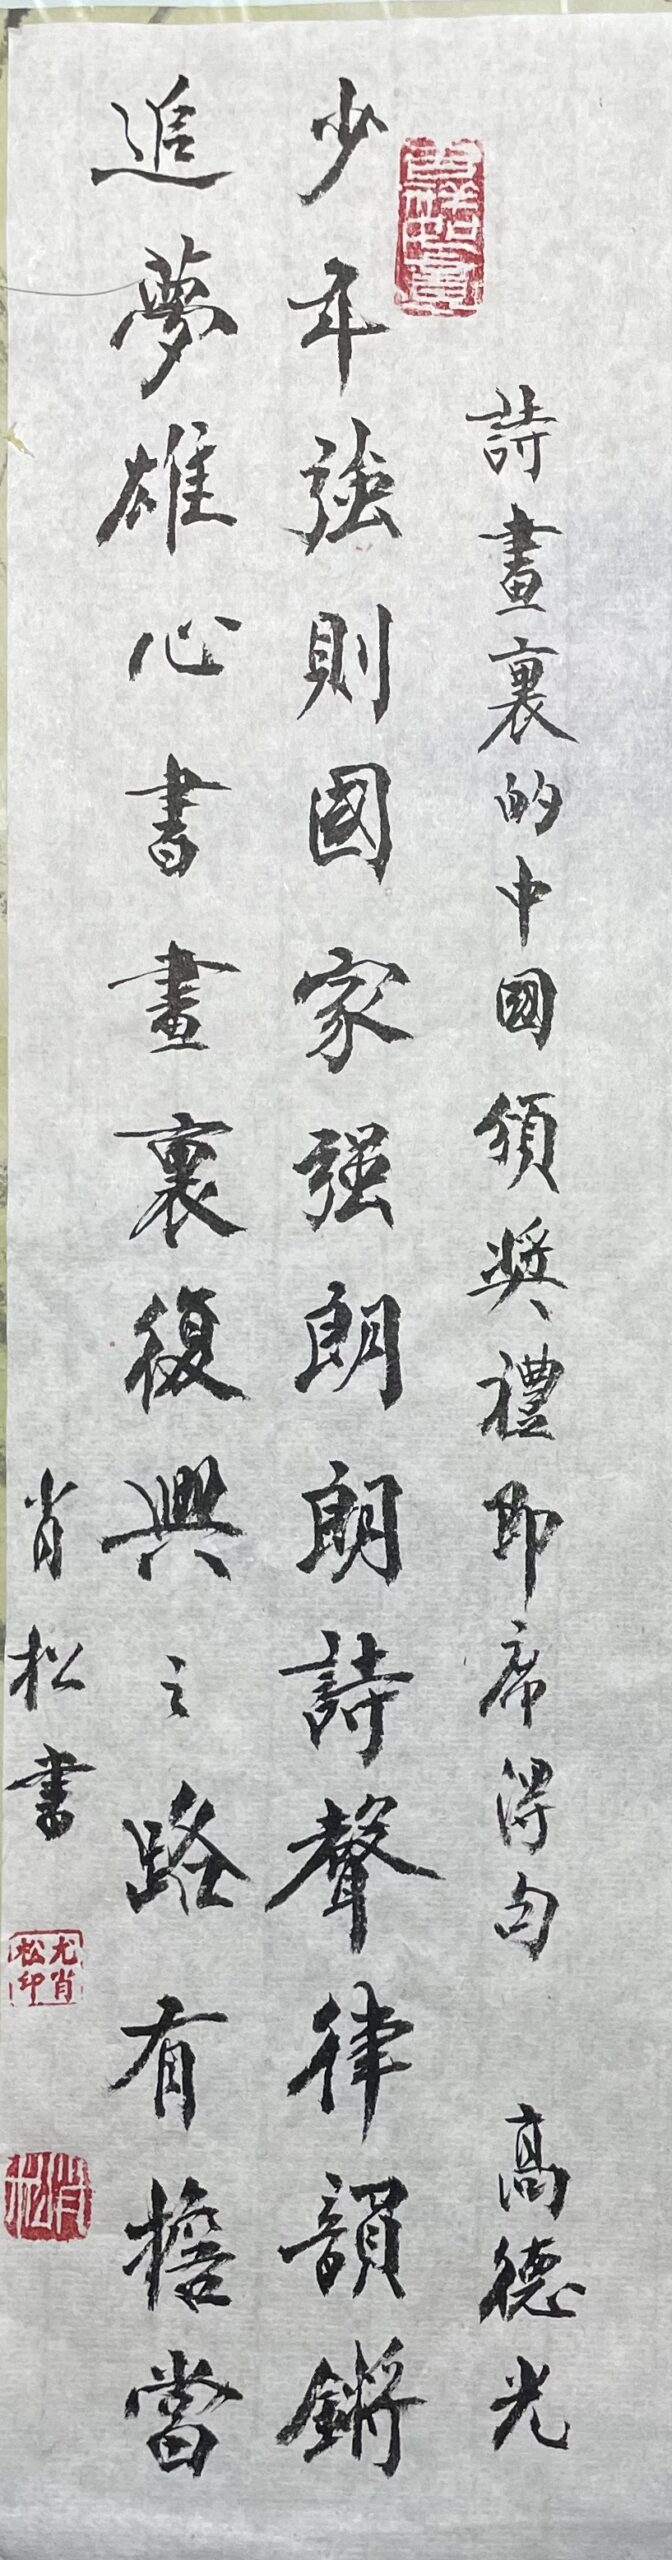 詩畫裏的中國頒奬禮即席得句 高德光
少年強則國家强朗朗詩聲律韻鏘
追夢雄心書畫裏復興之路有擔當
肖松書
尤肖松印
肖松